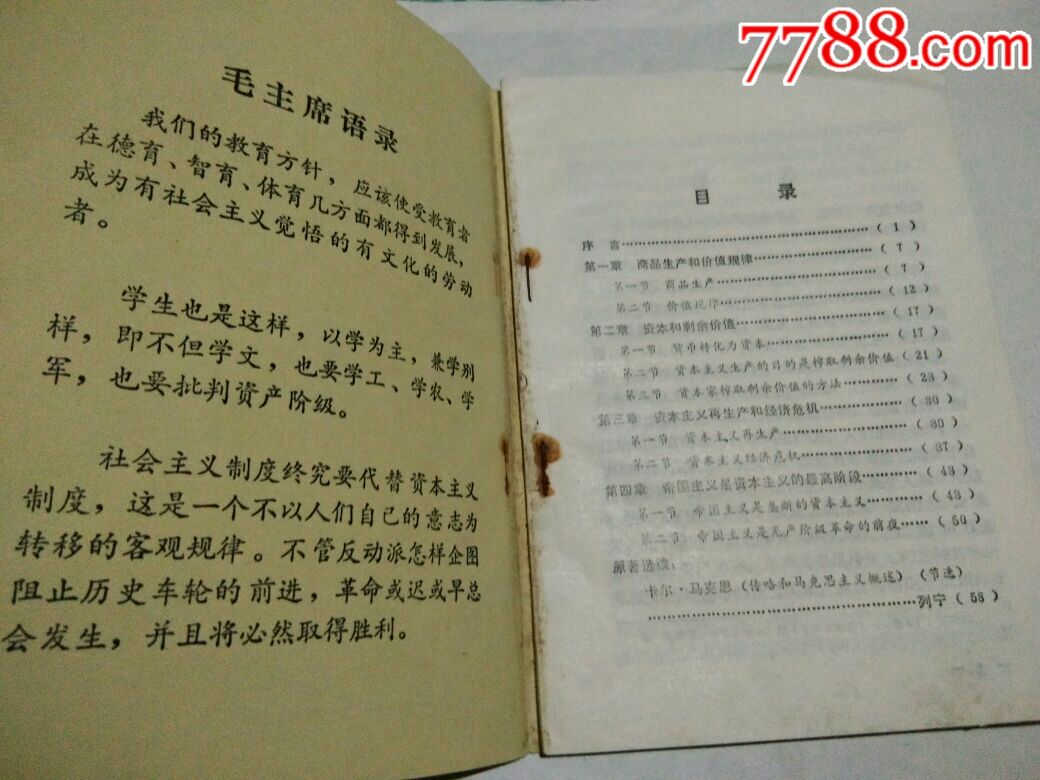 7788.com
毛主席语录
我们的教育方针，应该使受教育者
在德育、智育、体育几方面都得到发展，
成为有社会主义觉悟的有文化的劳动
者。
学生也是这样，以学为主，兼学别
样，即不但学文，也要学工、学农、学
军，也要批判资产阶级。
社会主义制度终究要代替资本主义
制度，这是一个不以人们自己的意志为
转移的客观规律。不管反动派怎样企图
阻止历史车轮的前进，革命或迟或早总
会发生，并且将必然取得胜利。
目 录
序 言……………………………………（1）
第一章 商品生产和价值规律………………（7）
第一节 商品生产…………………………（7）
第二节 价值规律…………………………（12）
第二章 资本和剩余价值……………………（17）
第一节 货币转化为资本…………………（17）
第二节 资本主义生产的目的是榨取剩余价值（21）
第三节 资本家榨取剩余价值的方法………（23）
第三章 资本主义再生产和经济危机…………（30）
第一节 资本主义再生产…………………（30）
第二节 资本主义经济危机………………（37）
第四章 帝国主义是资本主义的最高阶段……（43）
第一节 帝国主义是垄断的资本主义………（43）
第二节 帝国主义是无产阶级革命的前夜…（50）
原著选读：
卡尔·马克思（传略和马克思主义概述）（节选）
……………………………………列宁（58）